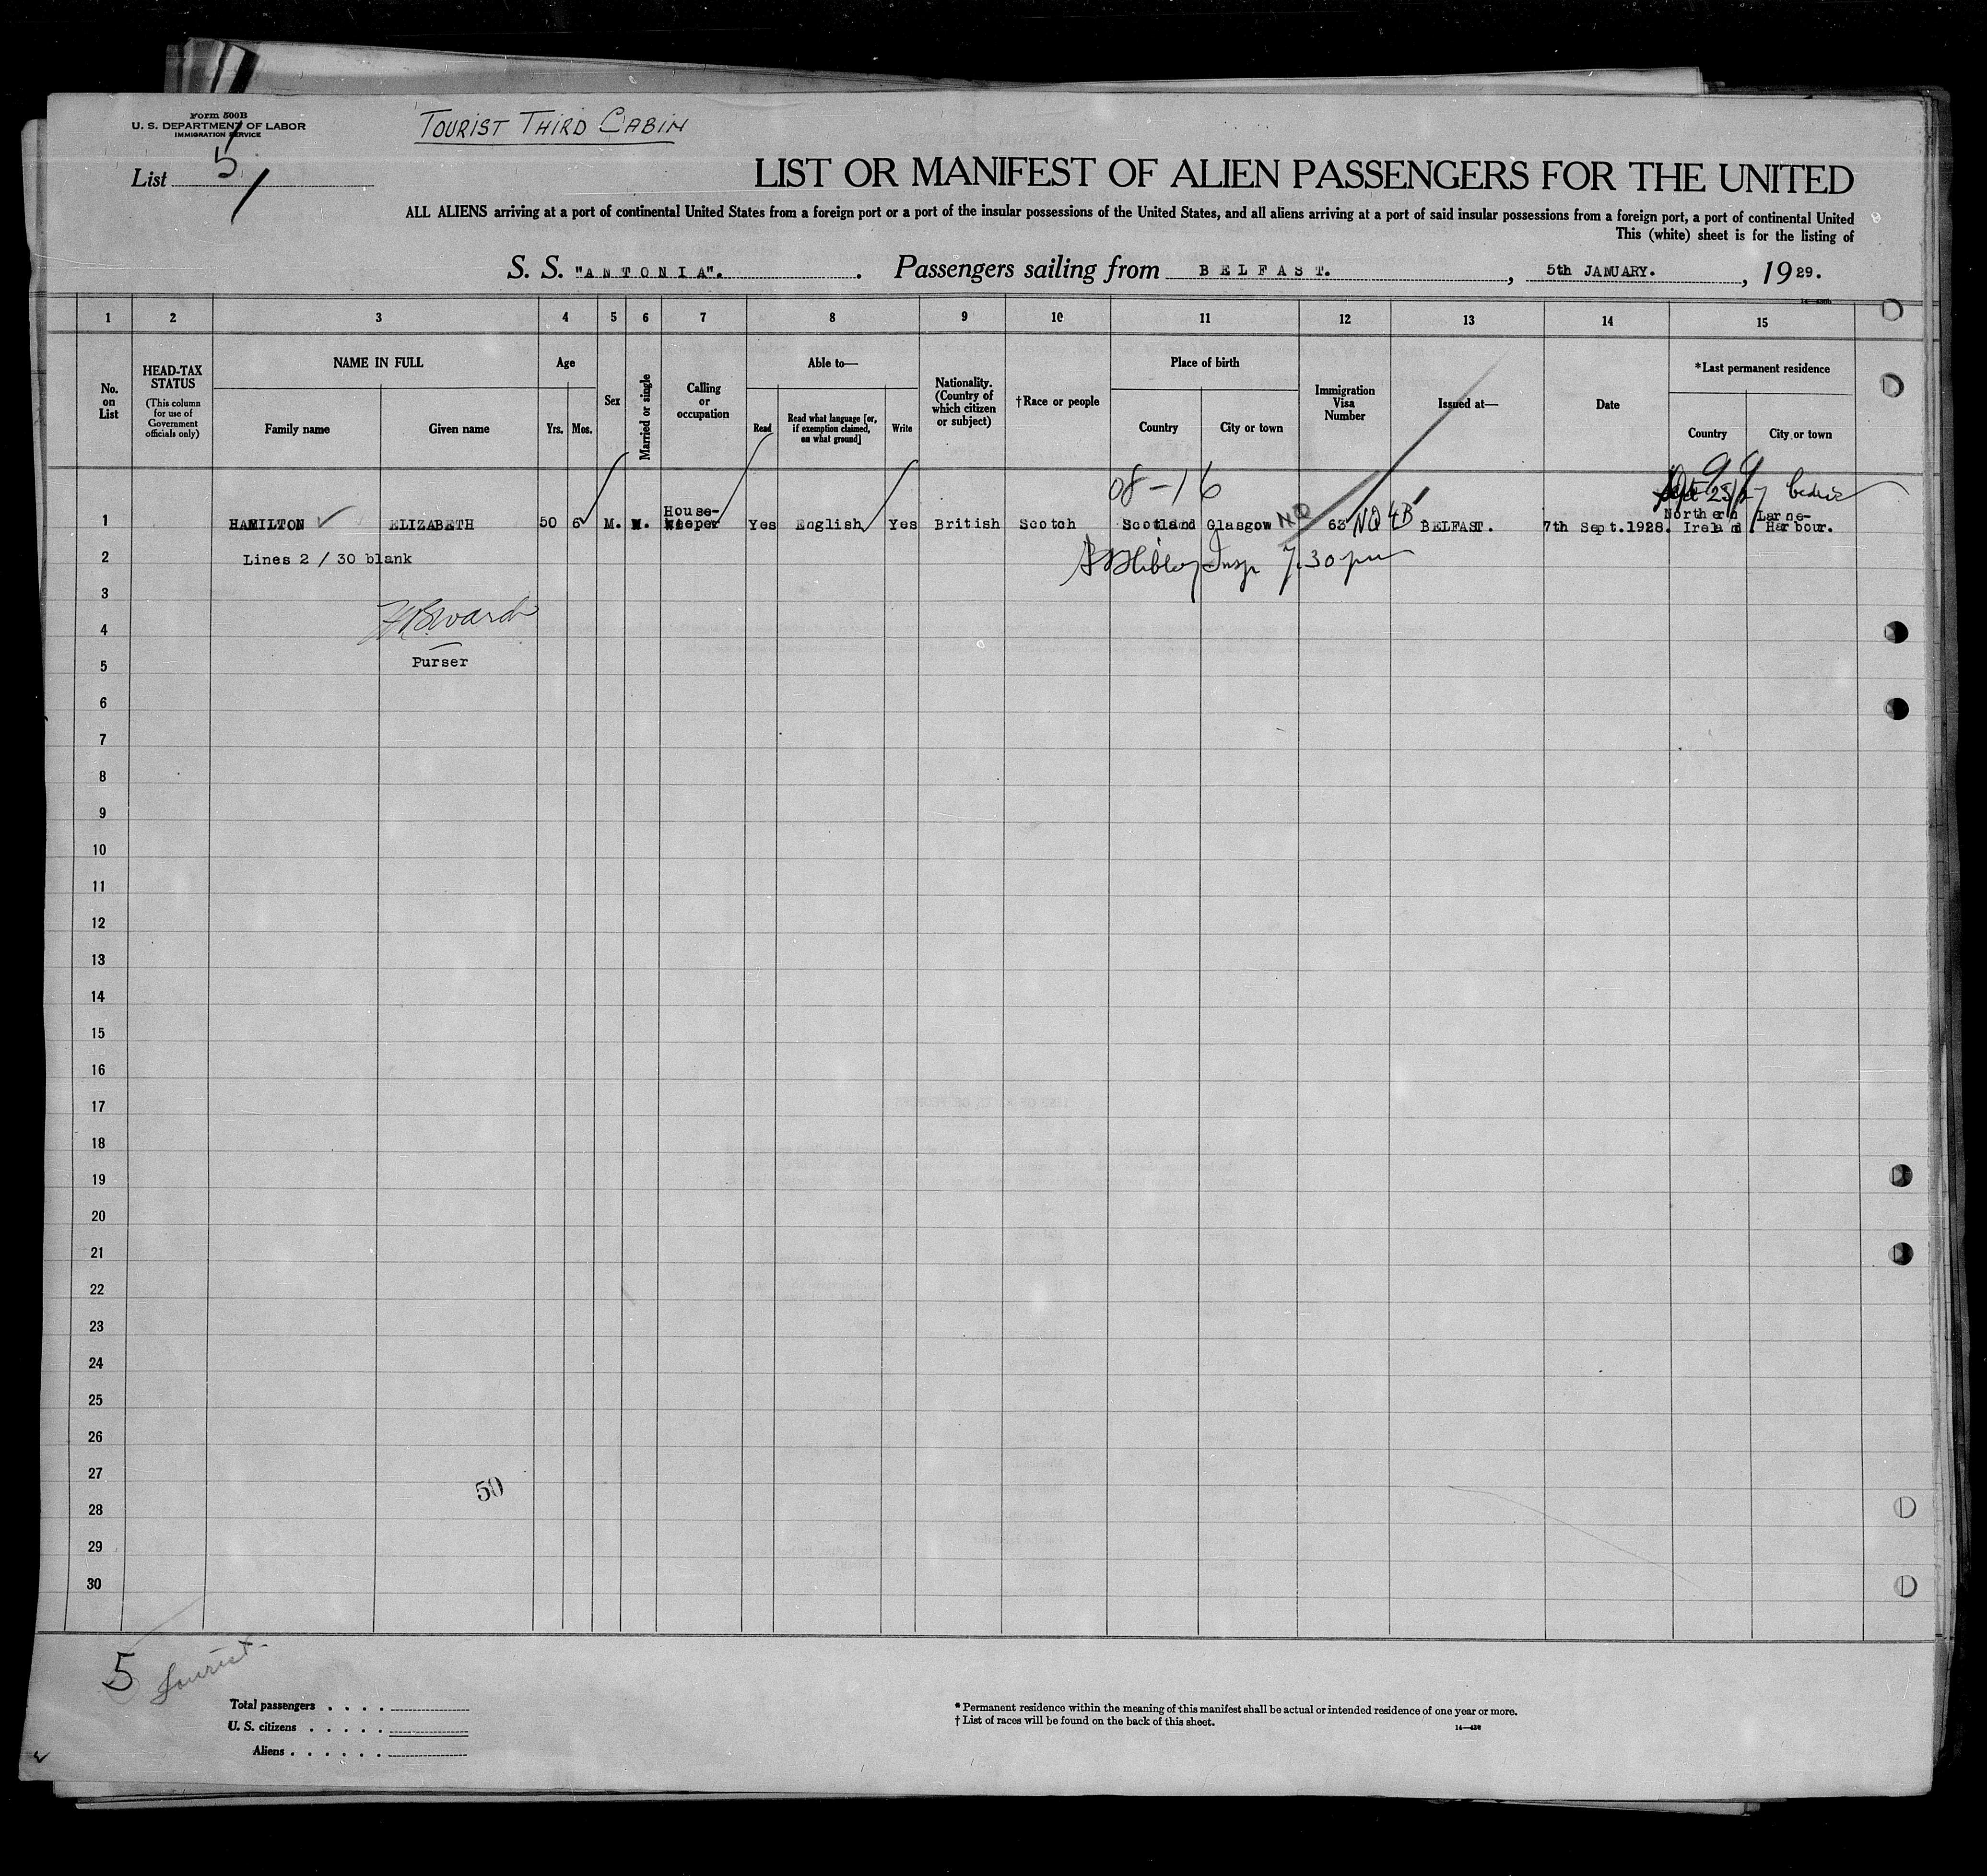 Form 500B
U. S. DEPARTMENT OF LABOR
IMMIGRATION SERVICE
TOURIST THIRD CABIN
List 5
LIST OR MANIFEST OF ALIEN PASSENGERS FOR THE UNITED
ALL ALIENS arriving at a port of continental United States from a foreign port or a port of the insular possessions of the United States, and all aliens arriving at a port of said insular possessions from a foreign port, a port of continental United
This (white) sheet is for the listing of
S. S. "ANTONIA". Passengers sailing from BELFAST. , 5th JANUARY. , 19 29.
1 2 3 4 5 6 7 8 9 10 11 12 13 14 15
No. on List
HEAD-TAX STATUS
(This column for use of Government officials only)
NAME IN FULL
Family name Given name
Age
Yrs. Mos.
Sex
Married or single
Calling or occupation
Able to—
Read
Read what language [or, if exemption claimed, on what ground]
Write
Nationality. (Country of which citizen or subject)
†Race or people
Place of birth
Country City or town
Immigration Visa Number
Issued at—
Date
*Last permanent residence
Country City or town
08-16
1 HAMILTON ELIZABETH 50 6 M. House-keeper Yes English Yes British Scotch Scotland Glasgow NQ 63 NQ 4B BELFAST. 7th Sept.1928. Northern Ireland. Larne-Harbour.
2 Lines 2 / 30 blank Insp 7.30 pm
3
4
5 Purser
6
7
8
9
10
11
12
13
14
15
16
17
18
19
20
21
22
23
24
25
26
27
50
28
29
30
5 Tourist
Total passengers . . . .
U. S. citizens . . . . .
Aliens . . . . . .
* Permanent residence within the meaning of this manifest shall be actual or intended residence of one year or more.
† List of races will be found on the back of this sheet.